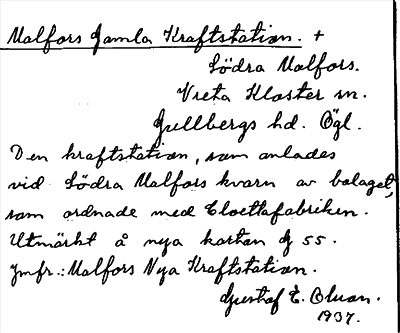 Malfors Gamla Kraftstation. +
Södra Malfors.
Vreta Kloster sn.
Gullbergs hd. Ögl.
Den kraftstation, som anlades
vid Södra Malfors kvarn av bolaget,
som ordnade med Cloettafabriken.
Utmärkt å nya kartan g 55.
Jmfr.: Malfors Nya Kraftstation.
Gustaf E. Bluan.
1937.